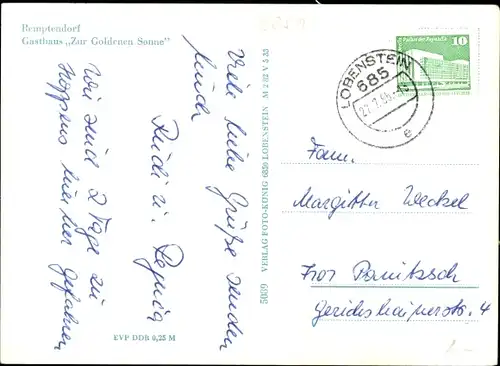 Remptendorf
Gasthaus „Zur Goldenen Sonne"
Viele liebe Grüße senden
Euch
Rudi u. Regina
Wir sind 2 Tage zu
Hoppens hierher gefahren
EVP DDR 0,25 M
5039 VERLAG FOTO-KUNIG 6850 LOBENSTEIN M 2 82 V 5 33
LOBENSTEIN
685
e
10
Fam.
Margitta Weckel
Panitzsch
Gerichshainerstr. 4